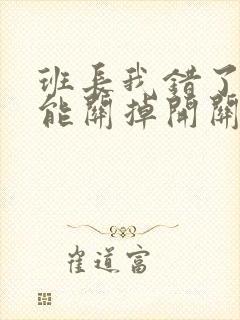 班長我錯了
能關掉開關
雀道富